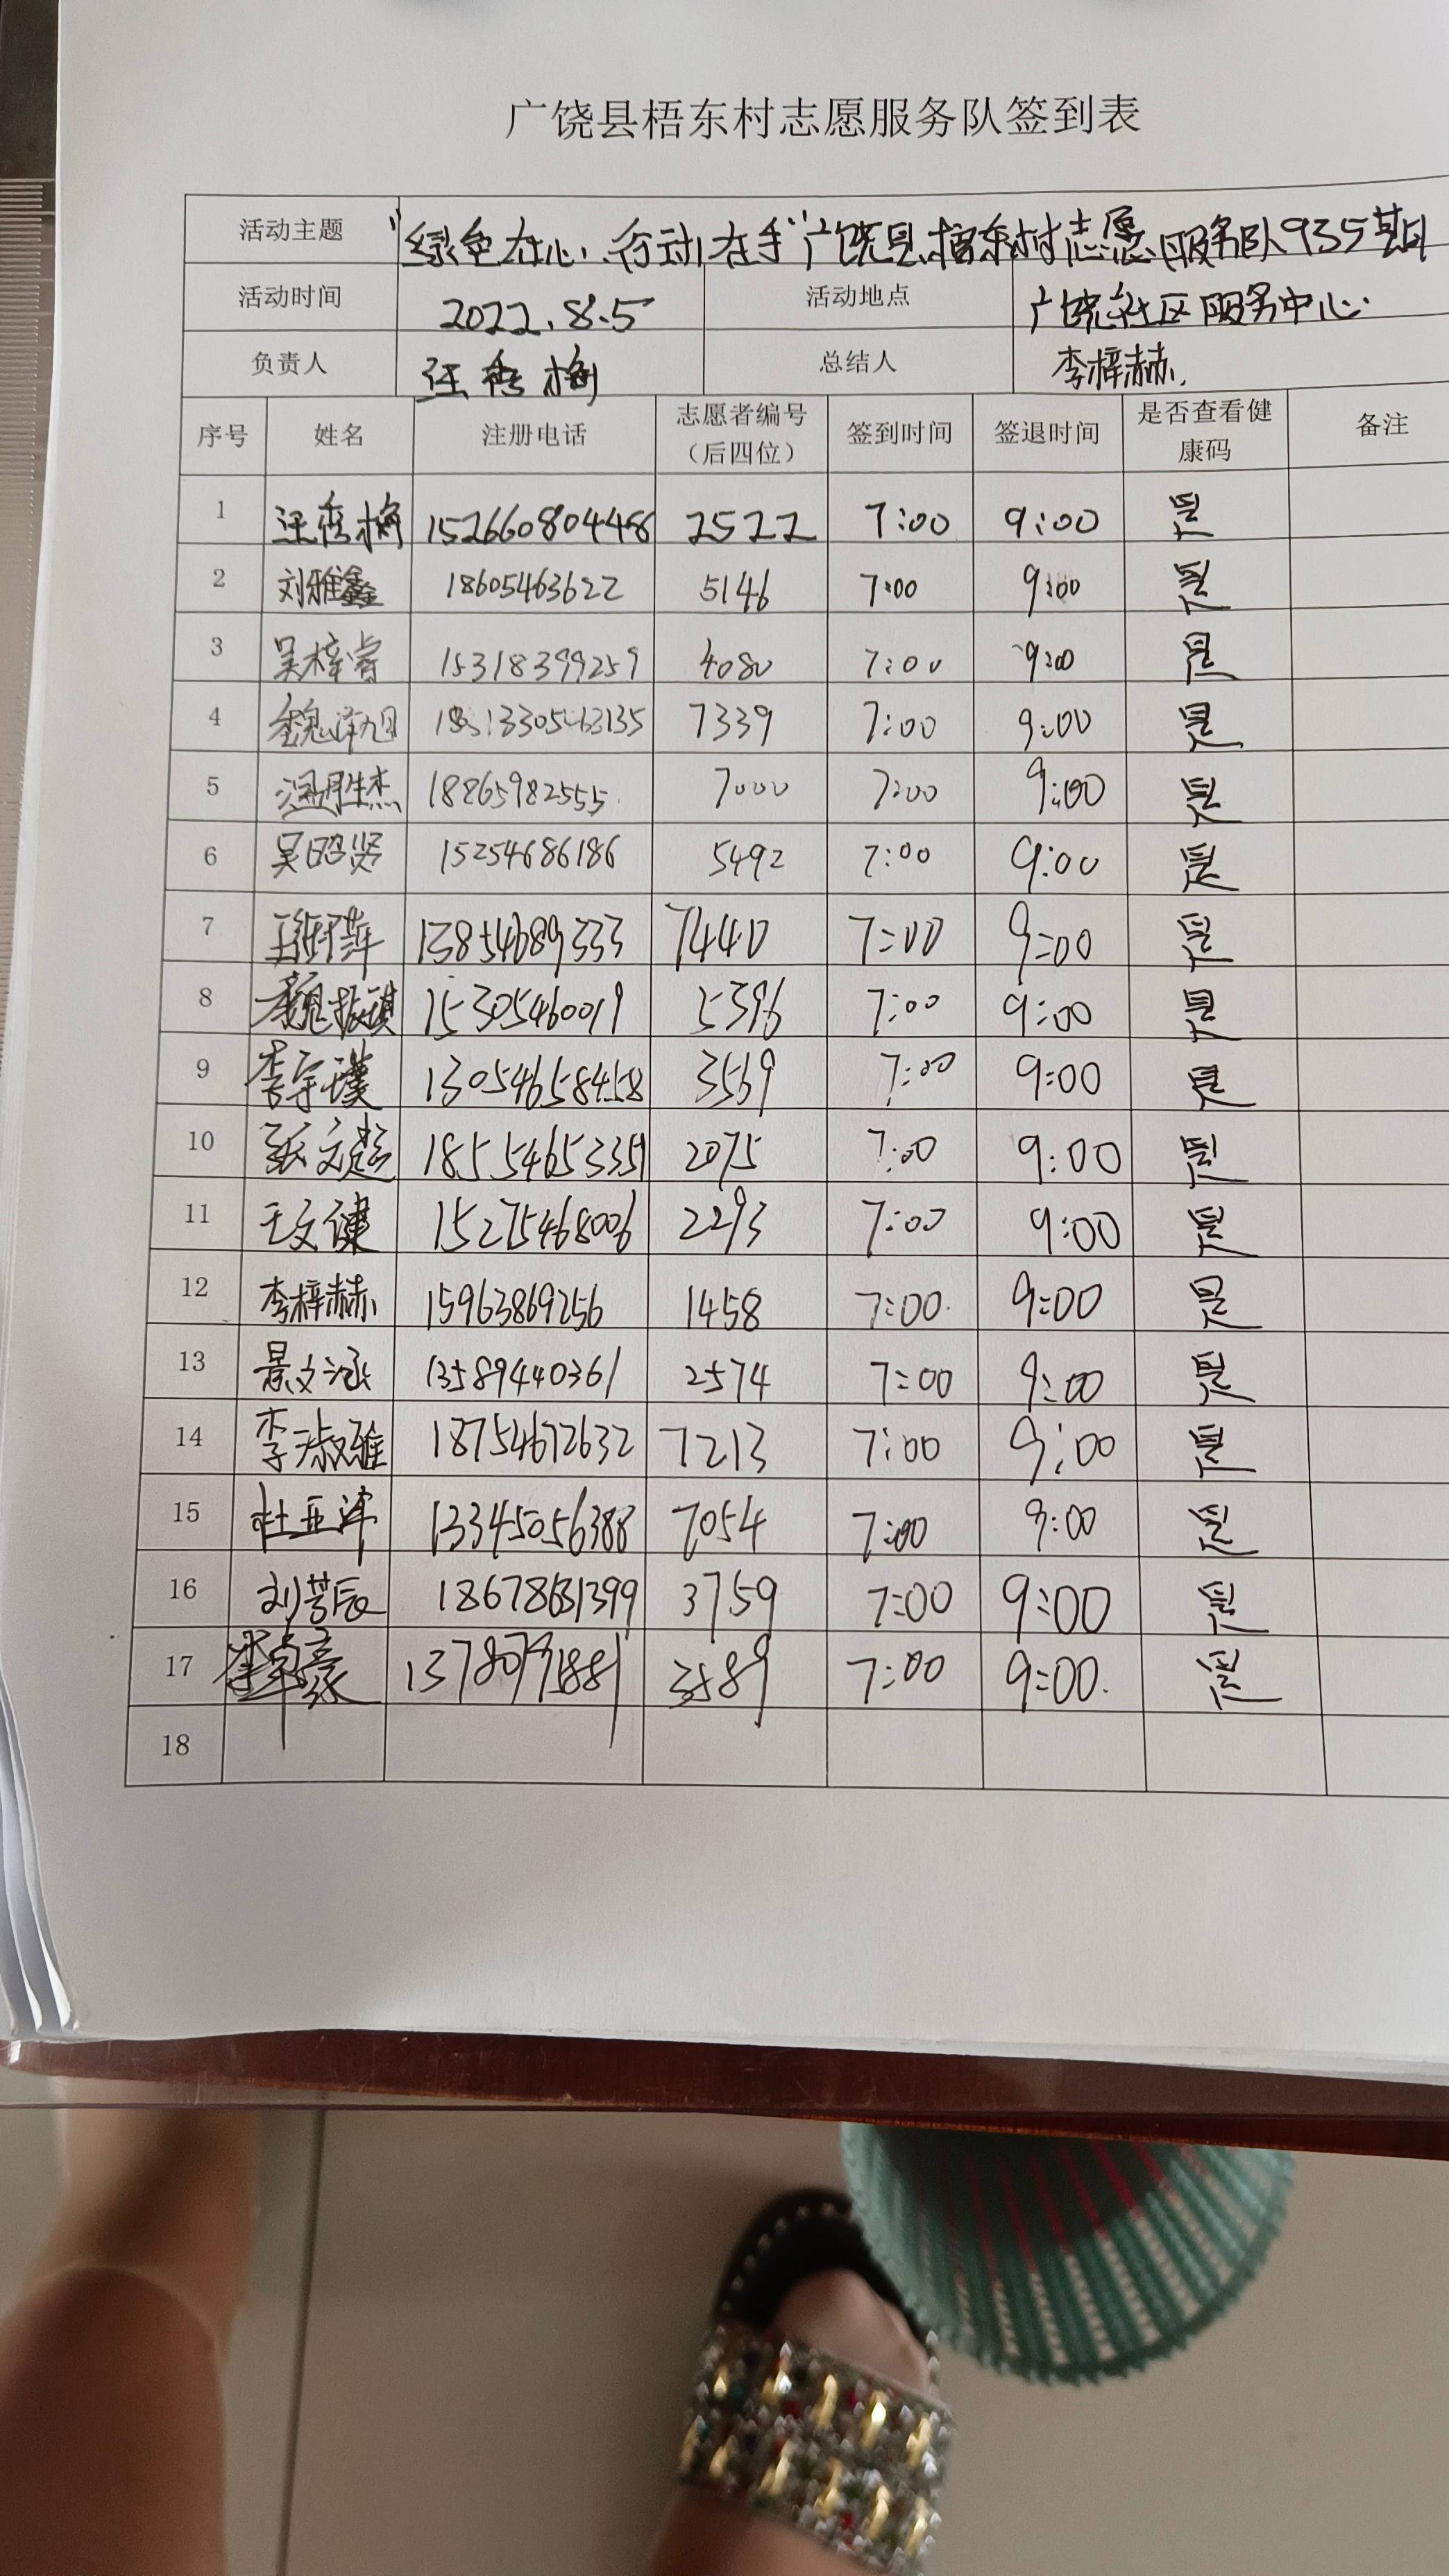 广饶县梧东村志愿服务队签到表
活动主题 “绿色在心、行动在手”广饶县梧东村志愿服务队935期
活动时间 2022.8.5 活动地点 广饶社区服务中心.
负责人 汪秀梅 总结人 李梓赫.
序号 姓名 注册电话 志愿者编号（后四位） 签到时间 签退时间 是否查看健康码 备注
1 汪秀梅 15266080448 2522 7:00 9:00 是
2 刘雅鑫 18605463622 5146 7:00 9:00 是
3 吴梓睿 15318399259 4080 7:00 9:00 是
4 7339 7:00 9:00 是
5 胜杰 18865982555 7000 7:00 9:00 是
6 吴昭贤 15254686186 5492 7:00 9:00 是
7 13854689333 7440 7:00 9:00 是
8 魏振琪 15305460019 5396 7:00 9:00 是
9 李宇璞 13054658458 3569 7:00 9:00 是
10 张文超 18554653351 2075 7:00 9:00 是
11 王文谏 15275468006 2293 7:00 9:00 是
12 李梓赫 15963869256 1458 7:00 9:00 是
13 景文涵 13589440361 2574 7:00 9:00 是
14 李淑雅 18754672632 7213 7:00 9:00 是
15 杜亚泽 13345056388 7054 7:00 9:00 是
16 刘芸辰 3759 7:00 9:00 是
17 3589 7:00 9:00 是
18